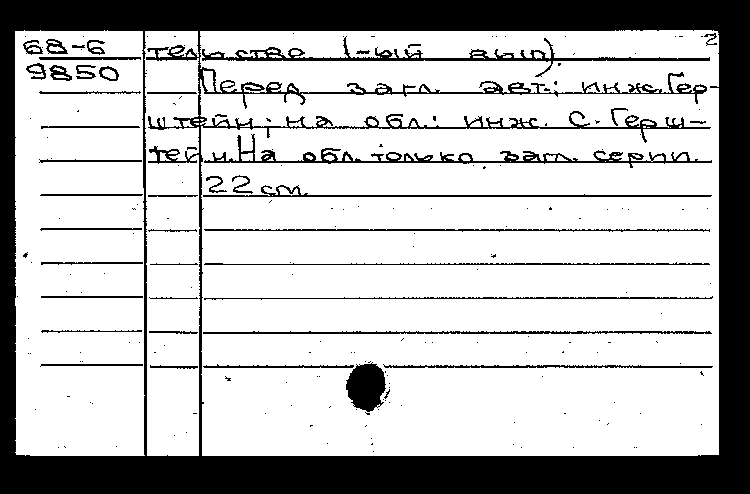 2
68-6 тельстве (1-ый вып).
9850 Перед загл. авт.: инж. Гер-
штейн; на обл.: инж. С. Герш-
тейн. На обл. только загл. серии.
22 cm.